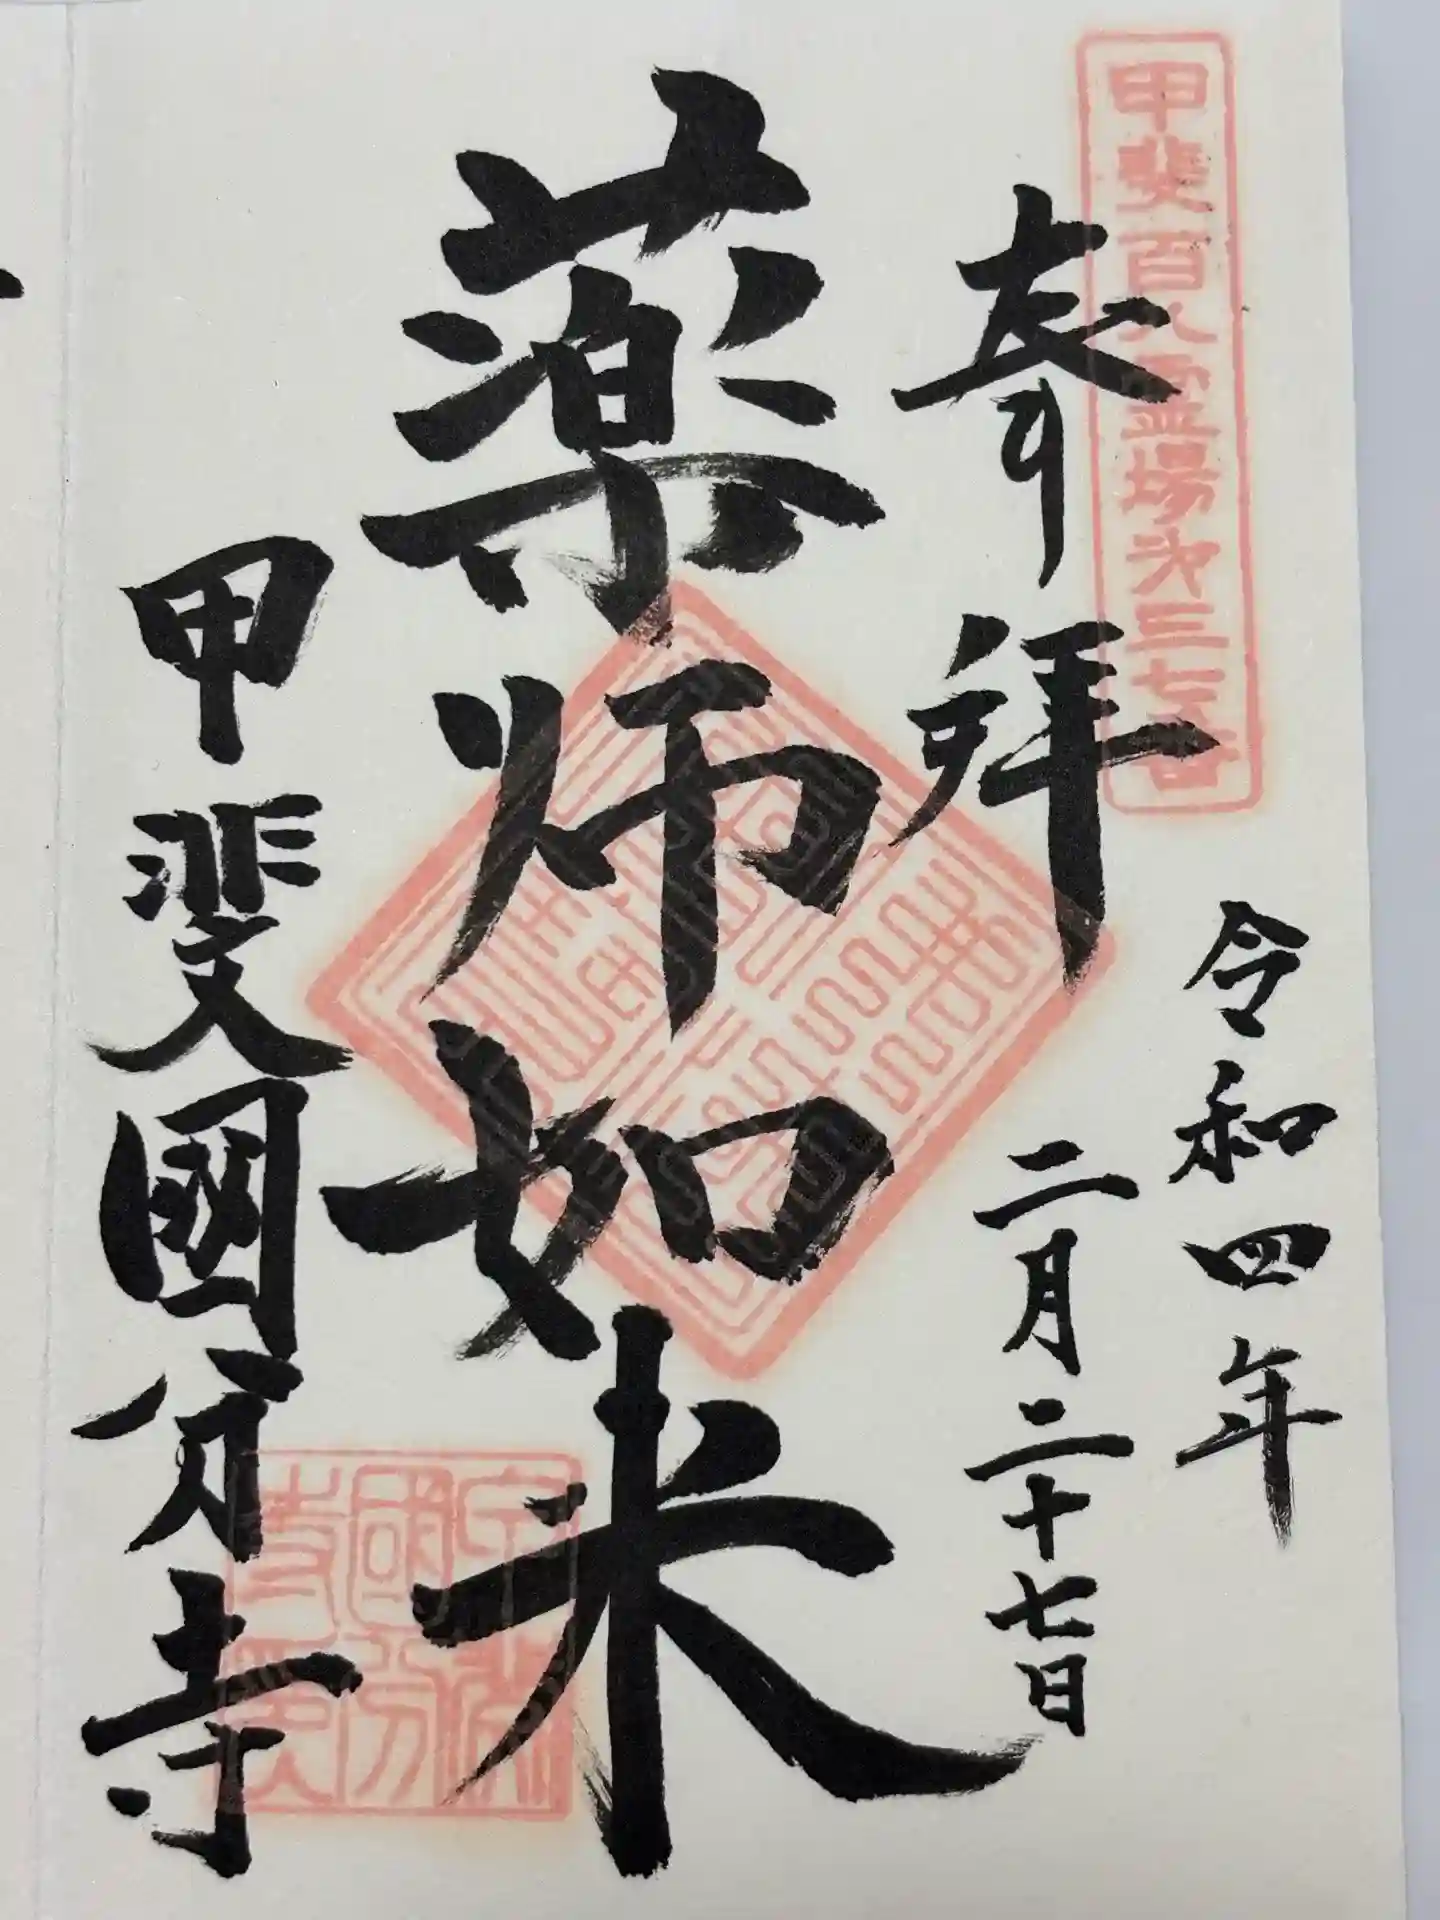 甲斐百八霊場第三七番
奉拝
令和四年
二月二十七日
薬師如来
甲斐國分寺